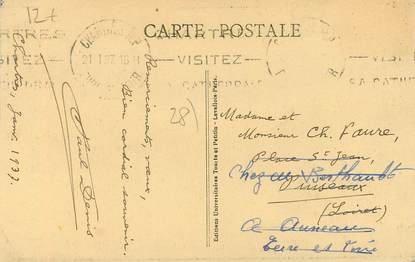 12+
CARTE POSTALE
CHARTRES
VISITEZ
SA CATHÉDRALE
VISITEZ
SA CATHE
Chartres, Janv. 1937.
Remerciements, vœux,
Bien cordial souvenir.
Paul Denis
28)
Editions Universitaires Tourte et Petitin - Levallois-Paris.
Madame et
Monsieur Ch. Faure,
Place St Jean,
Chez Berthault
Puiseaux
(Loiret)
à Auneau
Eure et Loir